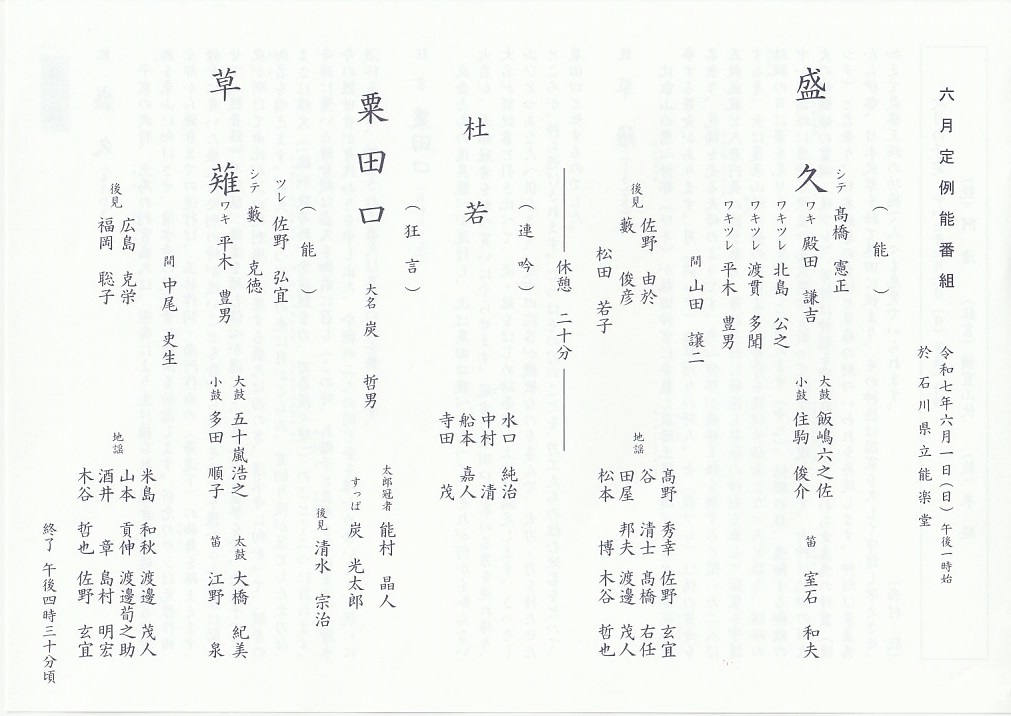 六月定例能番組
令和七年六月一日(日)午後一時始
於 石川県立能楽堂
(能)
シテ 髙橋 憲正
盛久
ワキ 殿田 謙吉
ワキツレ 北島 公之
ワキツレ 渡貫 多聞
ワキツレ 平木 豊男
間 山田 譲二
大鼓 飯嶋六之佐
小鼓 住駒 俊介
笛 室石 和夫
後見 佐野 由於
藪 俊彦
松田 若子
地謡
髙野 秀幸 佐野 玄宜
谷 清士 髙橋 右任
田屋 邦夫 渡邊 茂人
松本 博 木谷 哲也
休憩 二十分
(連吟)
杜若
水口 純治
中村 清
船本 嘉人
寺田 茂
(狂言)
粟田口
大名 炭 哲男
太郎冠者 能村 晶人
すっぱ 炭 光太郎
後見 清水 宗治
(能)
ツレ 佐野 弘宜
シテ 藪 克徳
草薙
ワキ 平木 豊男
間 中尾 史生
大鼓 五十嵐浩之
小鼓 多田 順子
太鼓 大橋 紀美
笛 江野 泉
後見 広島 克栄
福岡 聡子
地謡
米島 和秋 渡邊 茂人
山本 貢伸 渡邊荀之助
酒井 章 島村 明宏
木谷 哲也 佐野 玄宜
終了 午後四時三十分頃